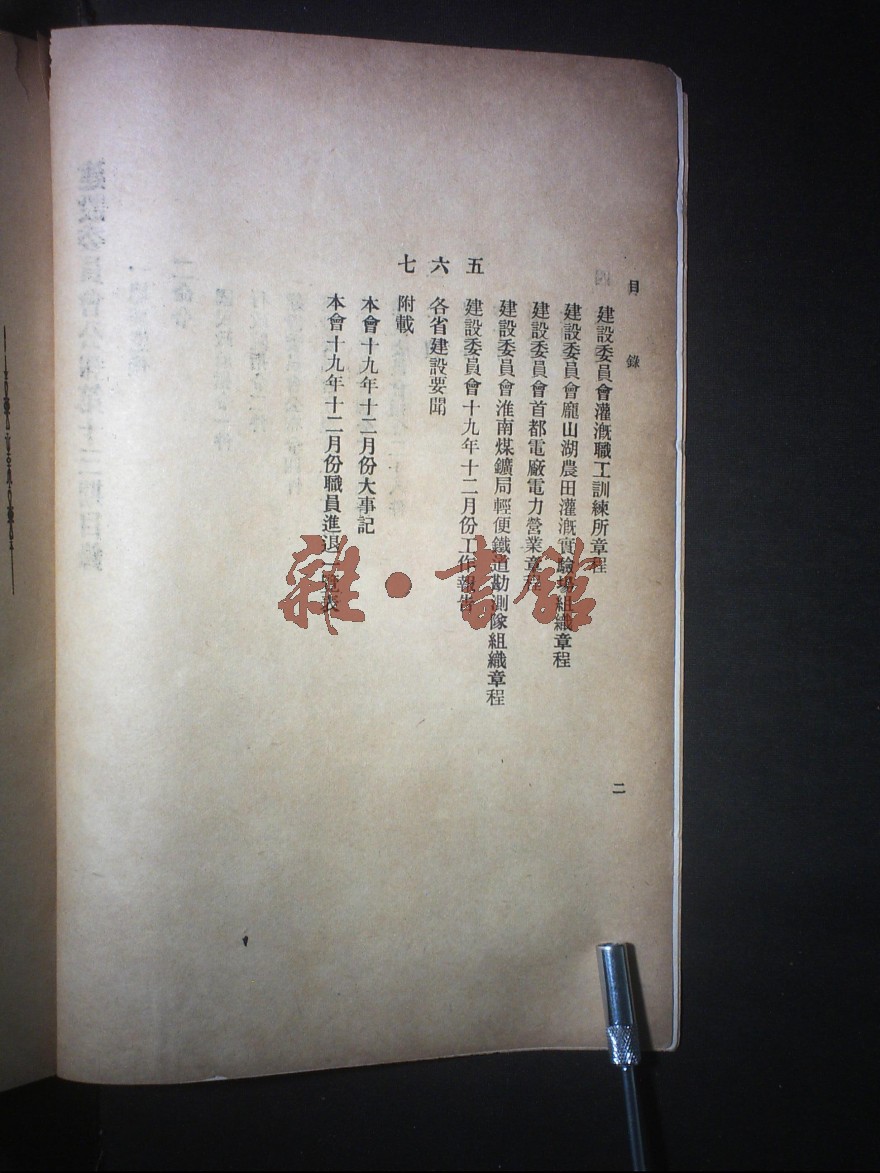 目錄
建設委員會灌漑職工訓練所章程
建設委員會龐山湖農田灌漑實驗場組織章程
建設委員會首都電廠電力營業章程
建設委員會淮南煤鑛局輕便鐵道勘測隊組織章程
五 建設委員會十九年十二月份工作報告
六 各省建設要聞
七 附載
本會十九年十二月份大事記
本會十九年十二月份職員進退一覽表
二
雜·書館